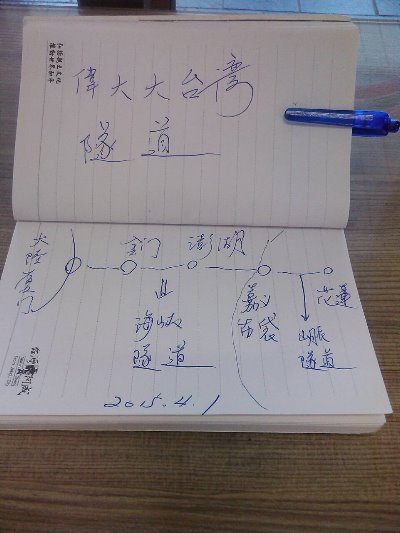 偉大大台灣
隧道
大陸廈門
金門
澎湖
嘉义
布袋
花蓮
海峽
隧道
山脈
隧道
2015.4.1